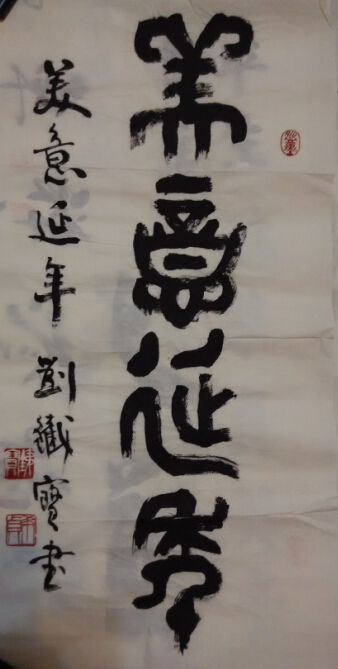 美意延年
美意延年 劉寶書